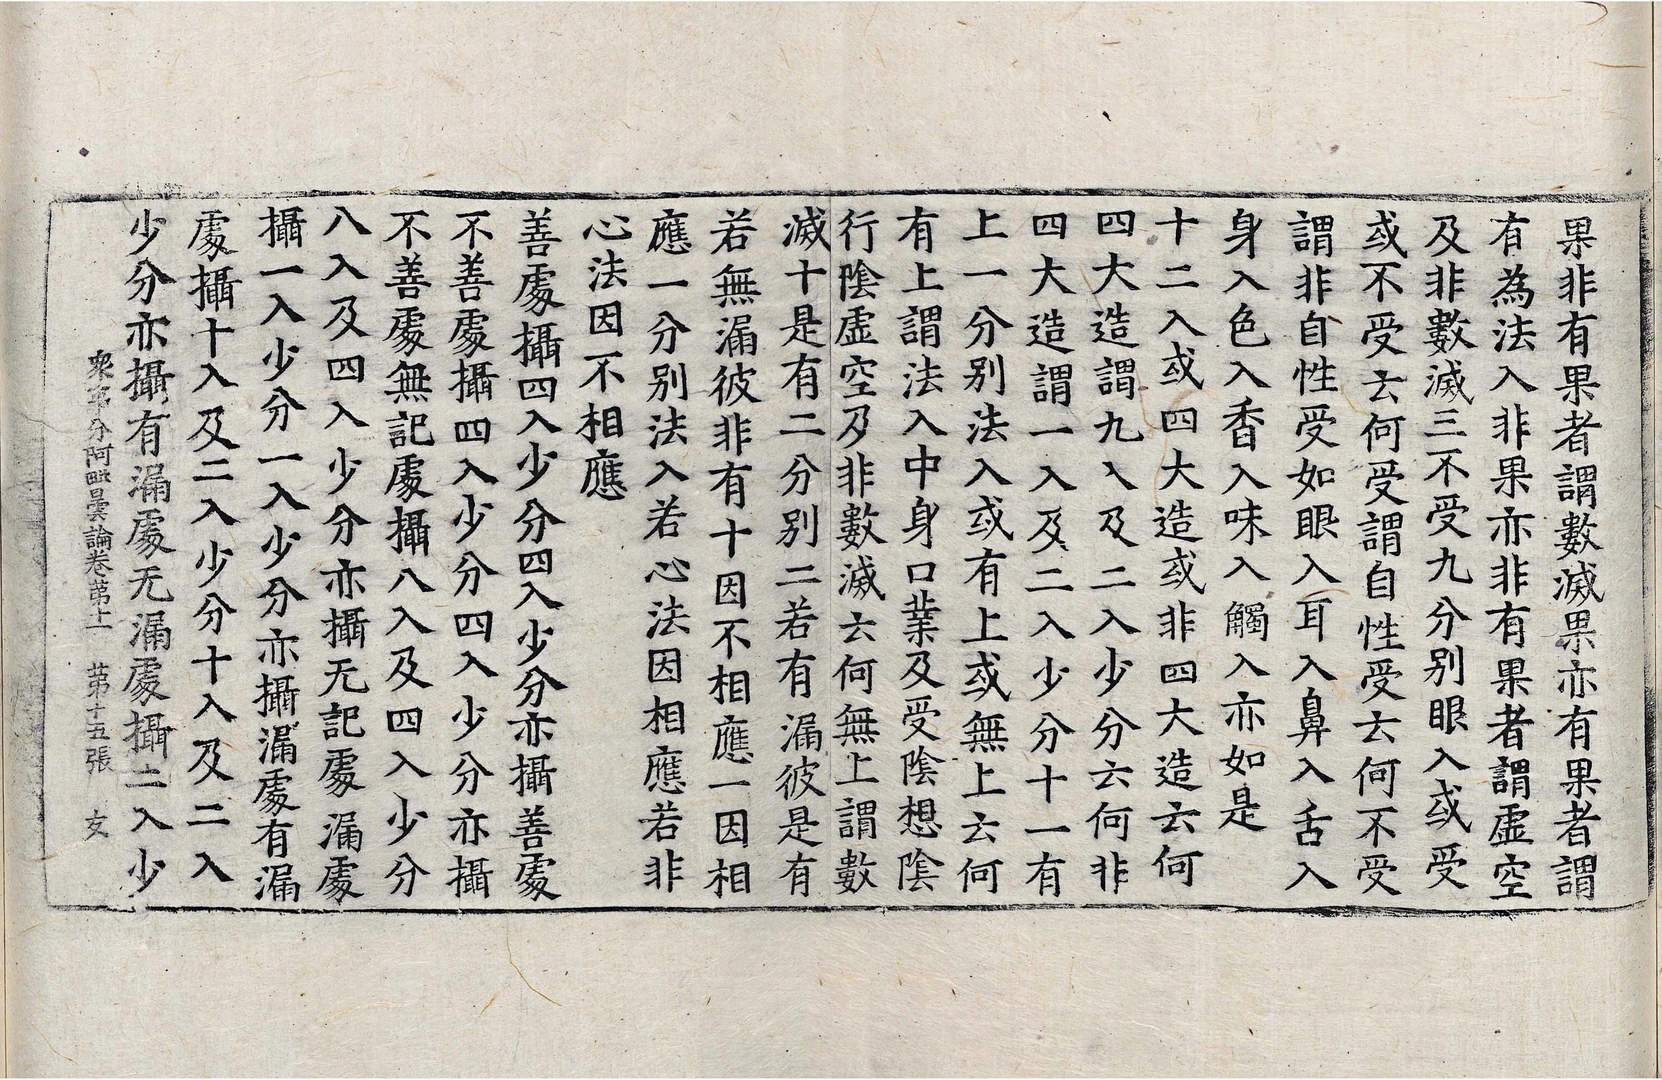 果非有果者謂數滅果亦有果者謂
有為法入非果亦非有果者謂虛空
及非數滅三不受九分別眼入或受
或不受云何受謂自性受云何不受
謂非自性受如眼入耳入鼻入舌入
身入色入香入味入觸入亦如是
十二入或四大造或非四大造云何
四大造謂九入及二入少分云何非
四大造謂一入及二入少分十一有
上一分別法入或有上或無上云何
有上謂法入中身口業及受陰想陰
行陰虛空及非數滅云何無上謂數
滅十是有二分別二若有漏彼是有
若無漏彼非有十因不相應一因相
應一分別法入若心法因相應若非
心法因不相應
善處攝四入少分四入少分亦攝善處
不善處攝四入少分四入少分亦攝
不善處無記處攝八入及四入少分
八入及四入少分亦攝无記處漏處
攝一入少分一入少分亦攝漏處有漏
處攝十入及二入少分十入及二入
少分亦攝有漏處无漏處攝二入少
衆事分阿毗曇論卷第十一 第十五張 文